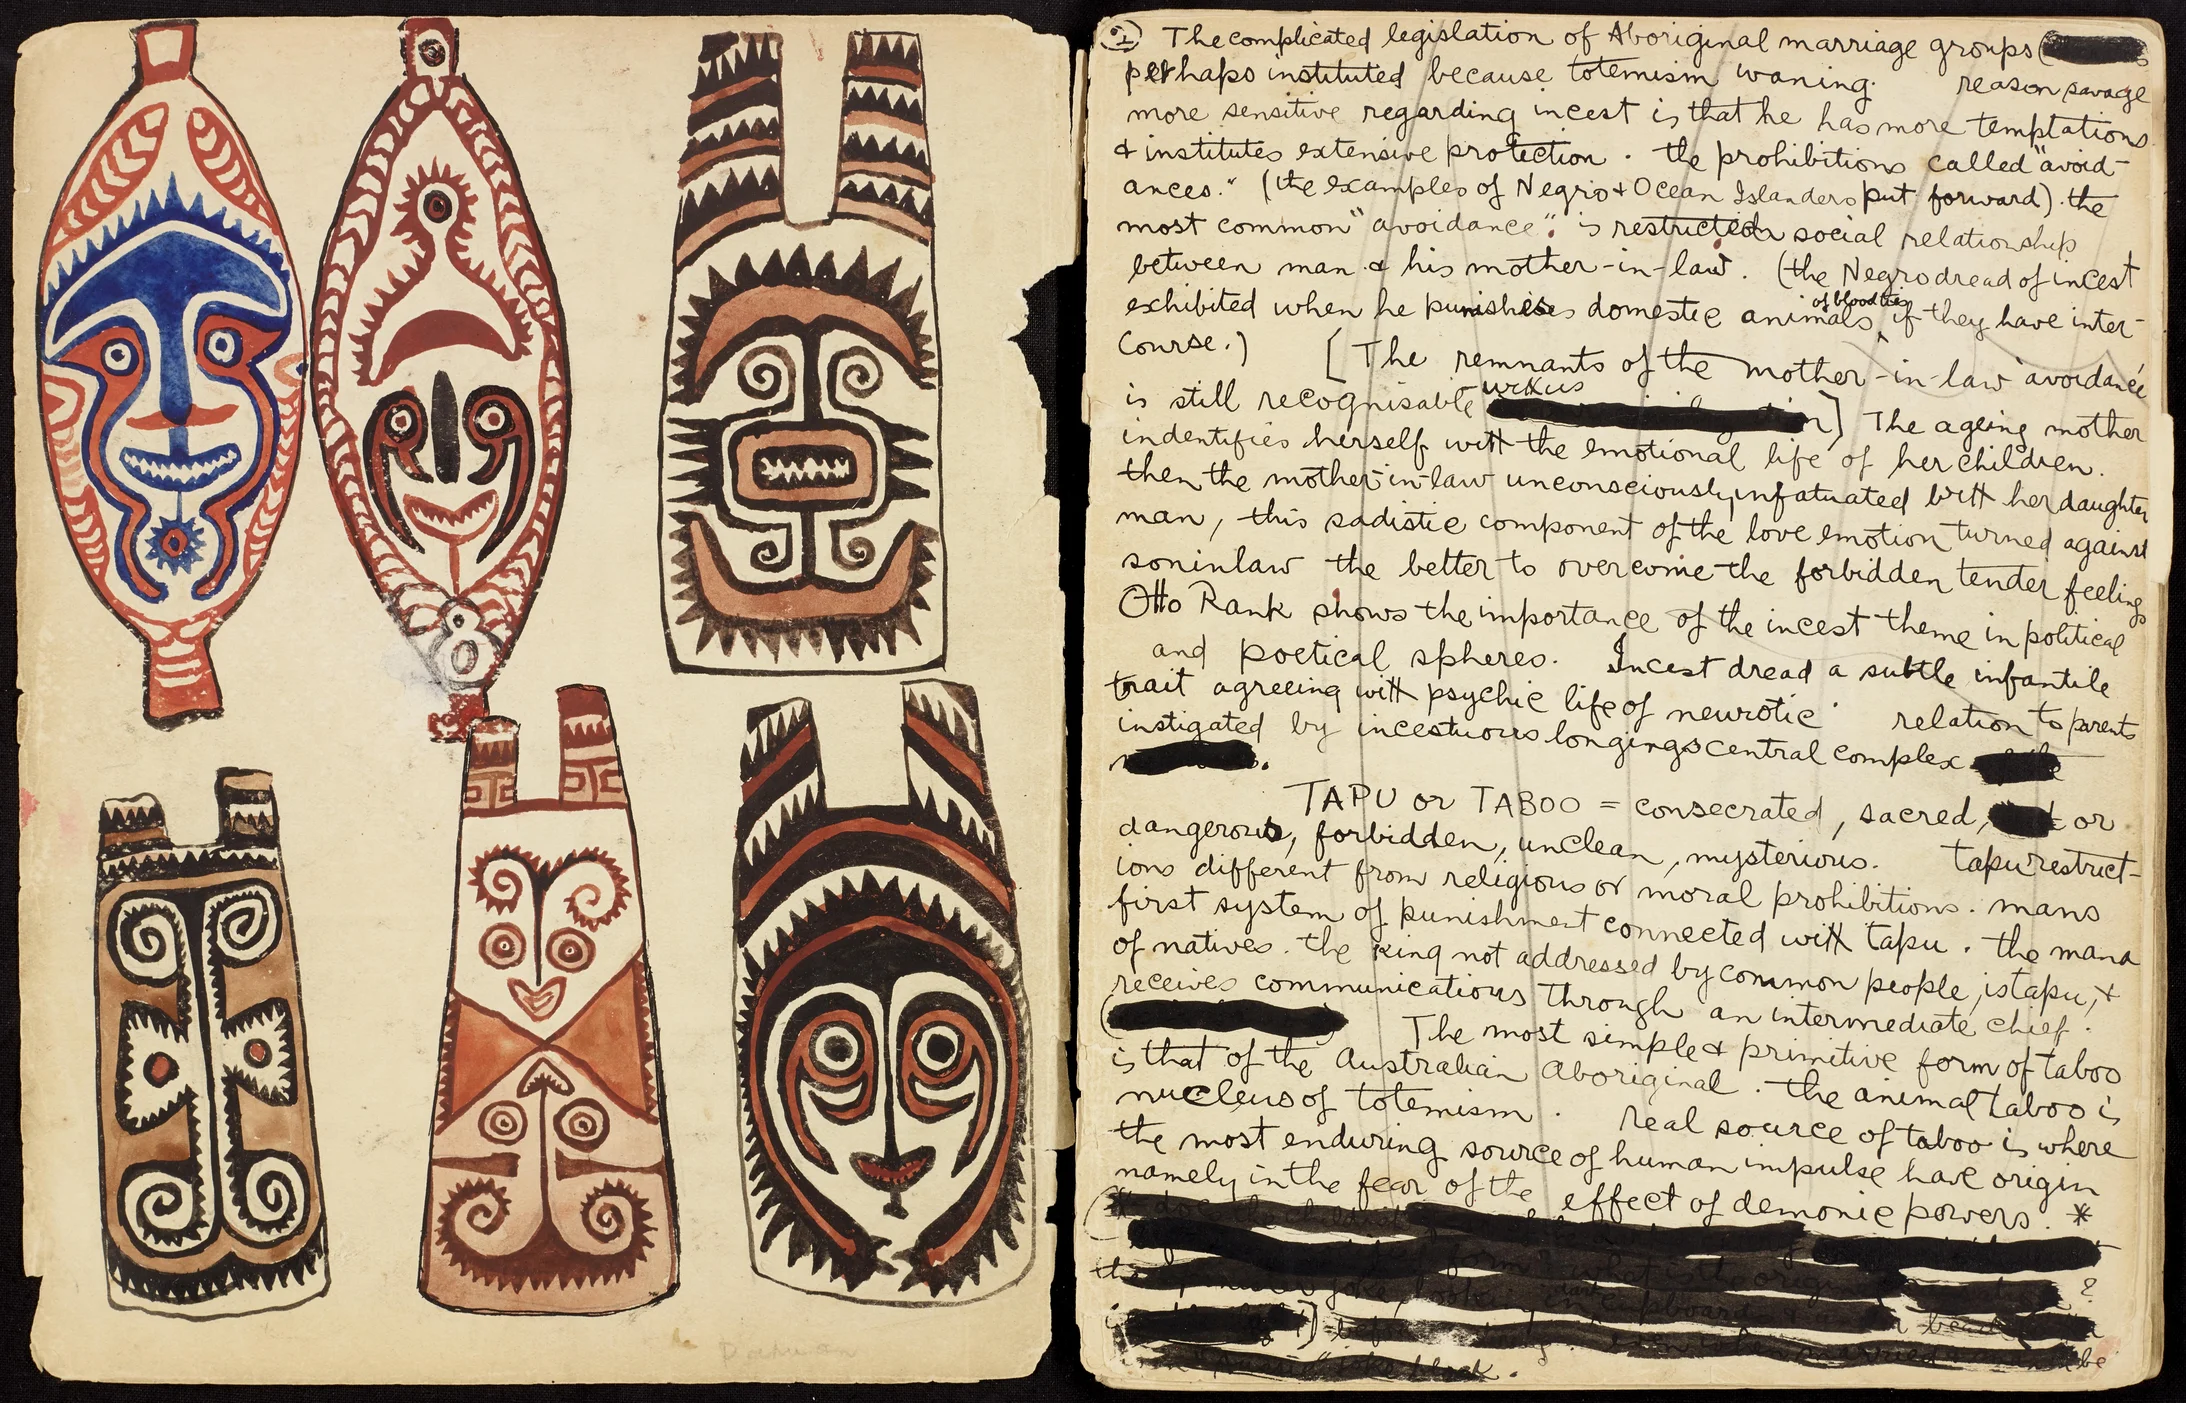 The complicated legislation of Aboriginal marriage groups (
perhaps instituted because totemism waning. reason savage
more sensitive regarding incest is that he has more temptations
& institutes extensive protection. the prohibitions called "avoid-
ances." (the examples of Negro + Ocean Islanders put forward). the
most common "avoidance" is restricted social relationship
between man & his mother-in-law. (the Negro dread of incest
exhibited when he punishes domestic animals of blood ties if they have inter-
course.) [The remnants of the mother-in-law avoidance
is still recognisable ] The ageing mother
indentifies herself with the emotional life of her children.
then the mother-in-law unconsciously infatuated with her daughter
man, this sadistic component of the love emotion turned against
soninlaw the better to overcome the forbidden tender feelings
Otto Rank shows the importance of the incest theme in political
and poetical spheres. Incest dread a subtle infantile
trait agreeing with psychic life of neurotic. relation to parents
instigated by incestuous longings central complex
TAPU or TABOO = consecrated, sacred, or
dangerous, forbidden, unclean, mysterious. tapu restrict-
ions different from religious or moral prohibitions. mans
first system of punishment connected with tapu. the mana
of natives. the King not addressed by common people, is tapu, +
receives communications through an intermediate chief.
( ) The most simple & primitive form of taboo
is that of the Australian Aboriginal. the animal taboo is
nucleus of totemism. real source of taboo is where
the most enduring source of human impulse have origin
namely in the fear of the effect of demonic powers. *